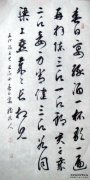 春日宴綠酒一杯歌一遍
再拜陳三願一願郎君千歲
二願妾身常健三願如同
梁上燕歲歲長相見